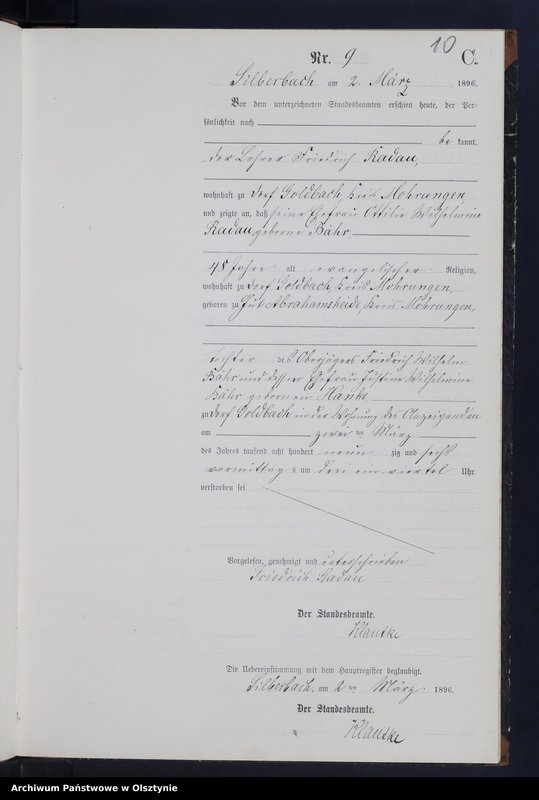 10
Nr. 9 C.
Silberbach am 2 März 1896.
Vor dem unterzeichneten Standesbeamten erschien heute, der Per-
sönlichkeit nach
be kannt.
der Lehrer Friedrich Radau,
wohnhaft zu Dorf Goldbach, Kreis Mohrungen
und zeigte an, daß seine Ehefrau Ottilie Wilhelmine
Radau geborne Bähr
48 Jahre alt evangelischer Religion,
wohnhaft zu Dorf Goldbach, Kreis Mohrungen,
geboren zu Gut Abrahamsheide, Kreis Mohrungen,
Tochter des Oberjägers Friedrich Wilhelm
Bähr und dessen Ehefrau Justine Wilhelmine
Bähr gebornen Hanke
zu Dorf Goldbach in der Wohnung des Anzeigenden
am zwei ten März
des Jahres tausend acht hundert neun zig und sechs
vormittags um drei ein viertel Uhr
verstorben sei
Vorgelesen, genehmigt und unterschrieben
Friedrich Radau
Der Standesbeamte.
Klautke
Die Uebereinstimmung mit dem Hauptregister beglaubigt.
Silberbach, am 2 ten März 1896.
Der Standesbeamte.
Klautke
Archiwum Państwowe w Olsztynie